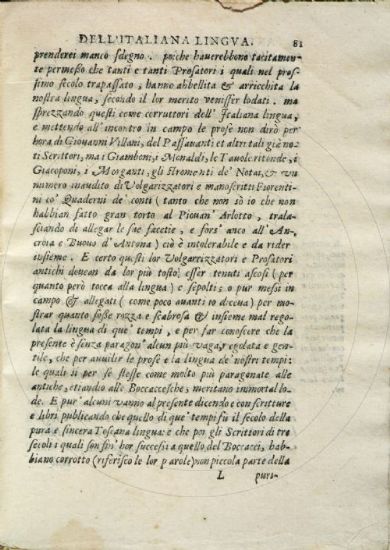 DELL'ITALIANA LINGVA. 81
prenderei manco sdegno. poiche hauerebbono tacitamen-
te permesso che tanti e tanti Prosatori i quali nel pros-
simo secolo trapassato, hanno abbellita & arricchita la
nostra lingua, secondo il lor merito venisser lodati. ma
sprezzando questi come corruttori dell'Italiana lingua,
e mettendo all'incontro in campo le prose non dirò per
hora di Giouanni Villani, del Passauanti et altri tali già no-
ti Scrittori, ma i Giamboni, i Monaldi, le Tauole ritonde, i
Giacoponi, i Morganti, gli Stromenti de' Notai, & vn
numero inaudito di Volgarizzatori e manoscritti Fiorenti-
ni co' Quaderni de' conti (tanto che non sò io che non
habbian fatto gran torto al Piouan' Arlotto, trala-
sciando di allegar le sue facetie, e fors' anco all' An-
croia e Buouo d'Antona) ciò è intolerabile e da rider
insieme. E certo questi lor Volgarrizzatori e Prosatori
antichi douean da lor più tosto esser tenuti ascosi (per
quanto però tocca alla lingua) e sepolti; o pur messi in
campo & allegati (come poco auanti to diceua) per mo-
strar quanto fosse rozza e scabrosa & insieme mal rego-
lata la lingua di que' tempi, e per far conoscere che la
presente è senza paragon' alcun più vaga, regolata e gen-
tile, che per auuilir le prose e la lingua de' nostri tempi:
le quali si per se stesse come molto più paragonate alle
antiche, etiandio alle Boccaccesche, meritano immortal lo-
de. E pur' alcuni vanno al presente dicendo e con scritture
e libri publicando che quello di que' tempi fù il secolo della
pura e sincera Toscana lingua: e che poi gli Scrittori di tre
secoli i quali son fin' hor successi a quello del Boccacci, hab-
biano corrotto (riferisco le lor parole) non piccola parte della
L puri-